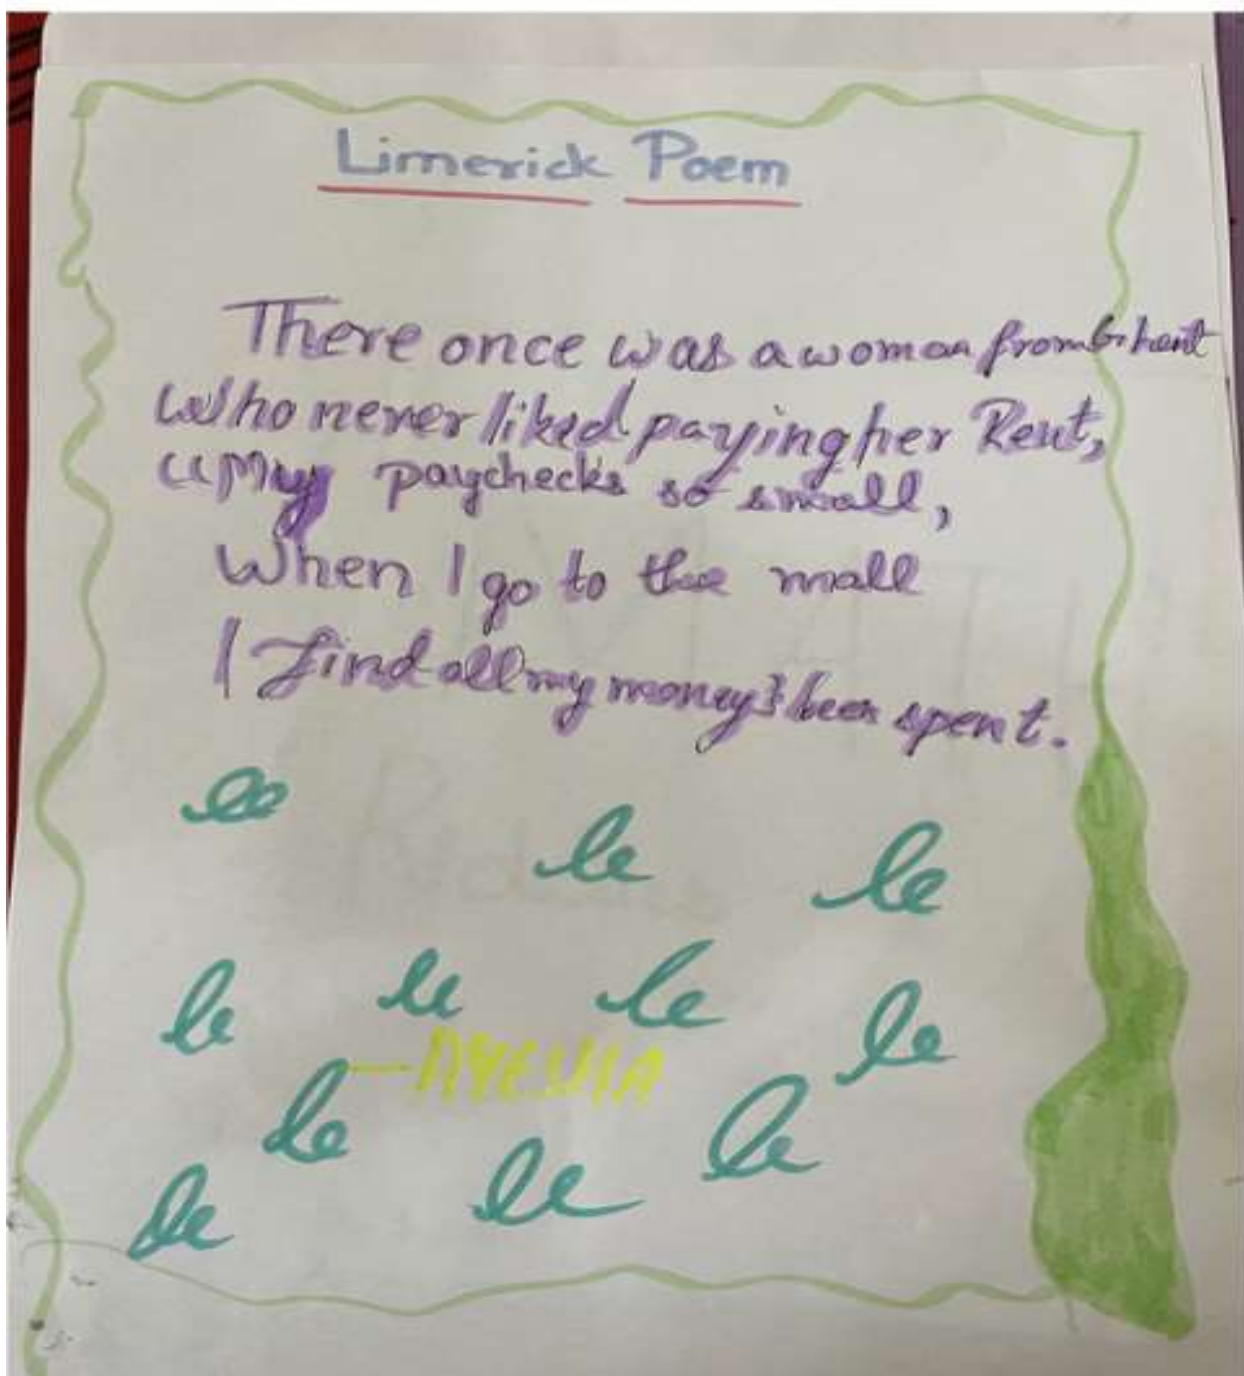 Limerick Poem
There once was a woman from Ghent
Who never liked paying her Rent,
"My paychecks so small,
When I go to the mall
I find all my money's been spent.
le
le
le
le
le
le
le
le
le
le
le